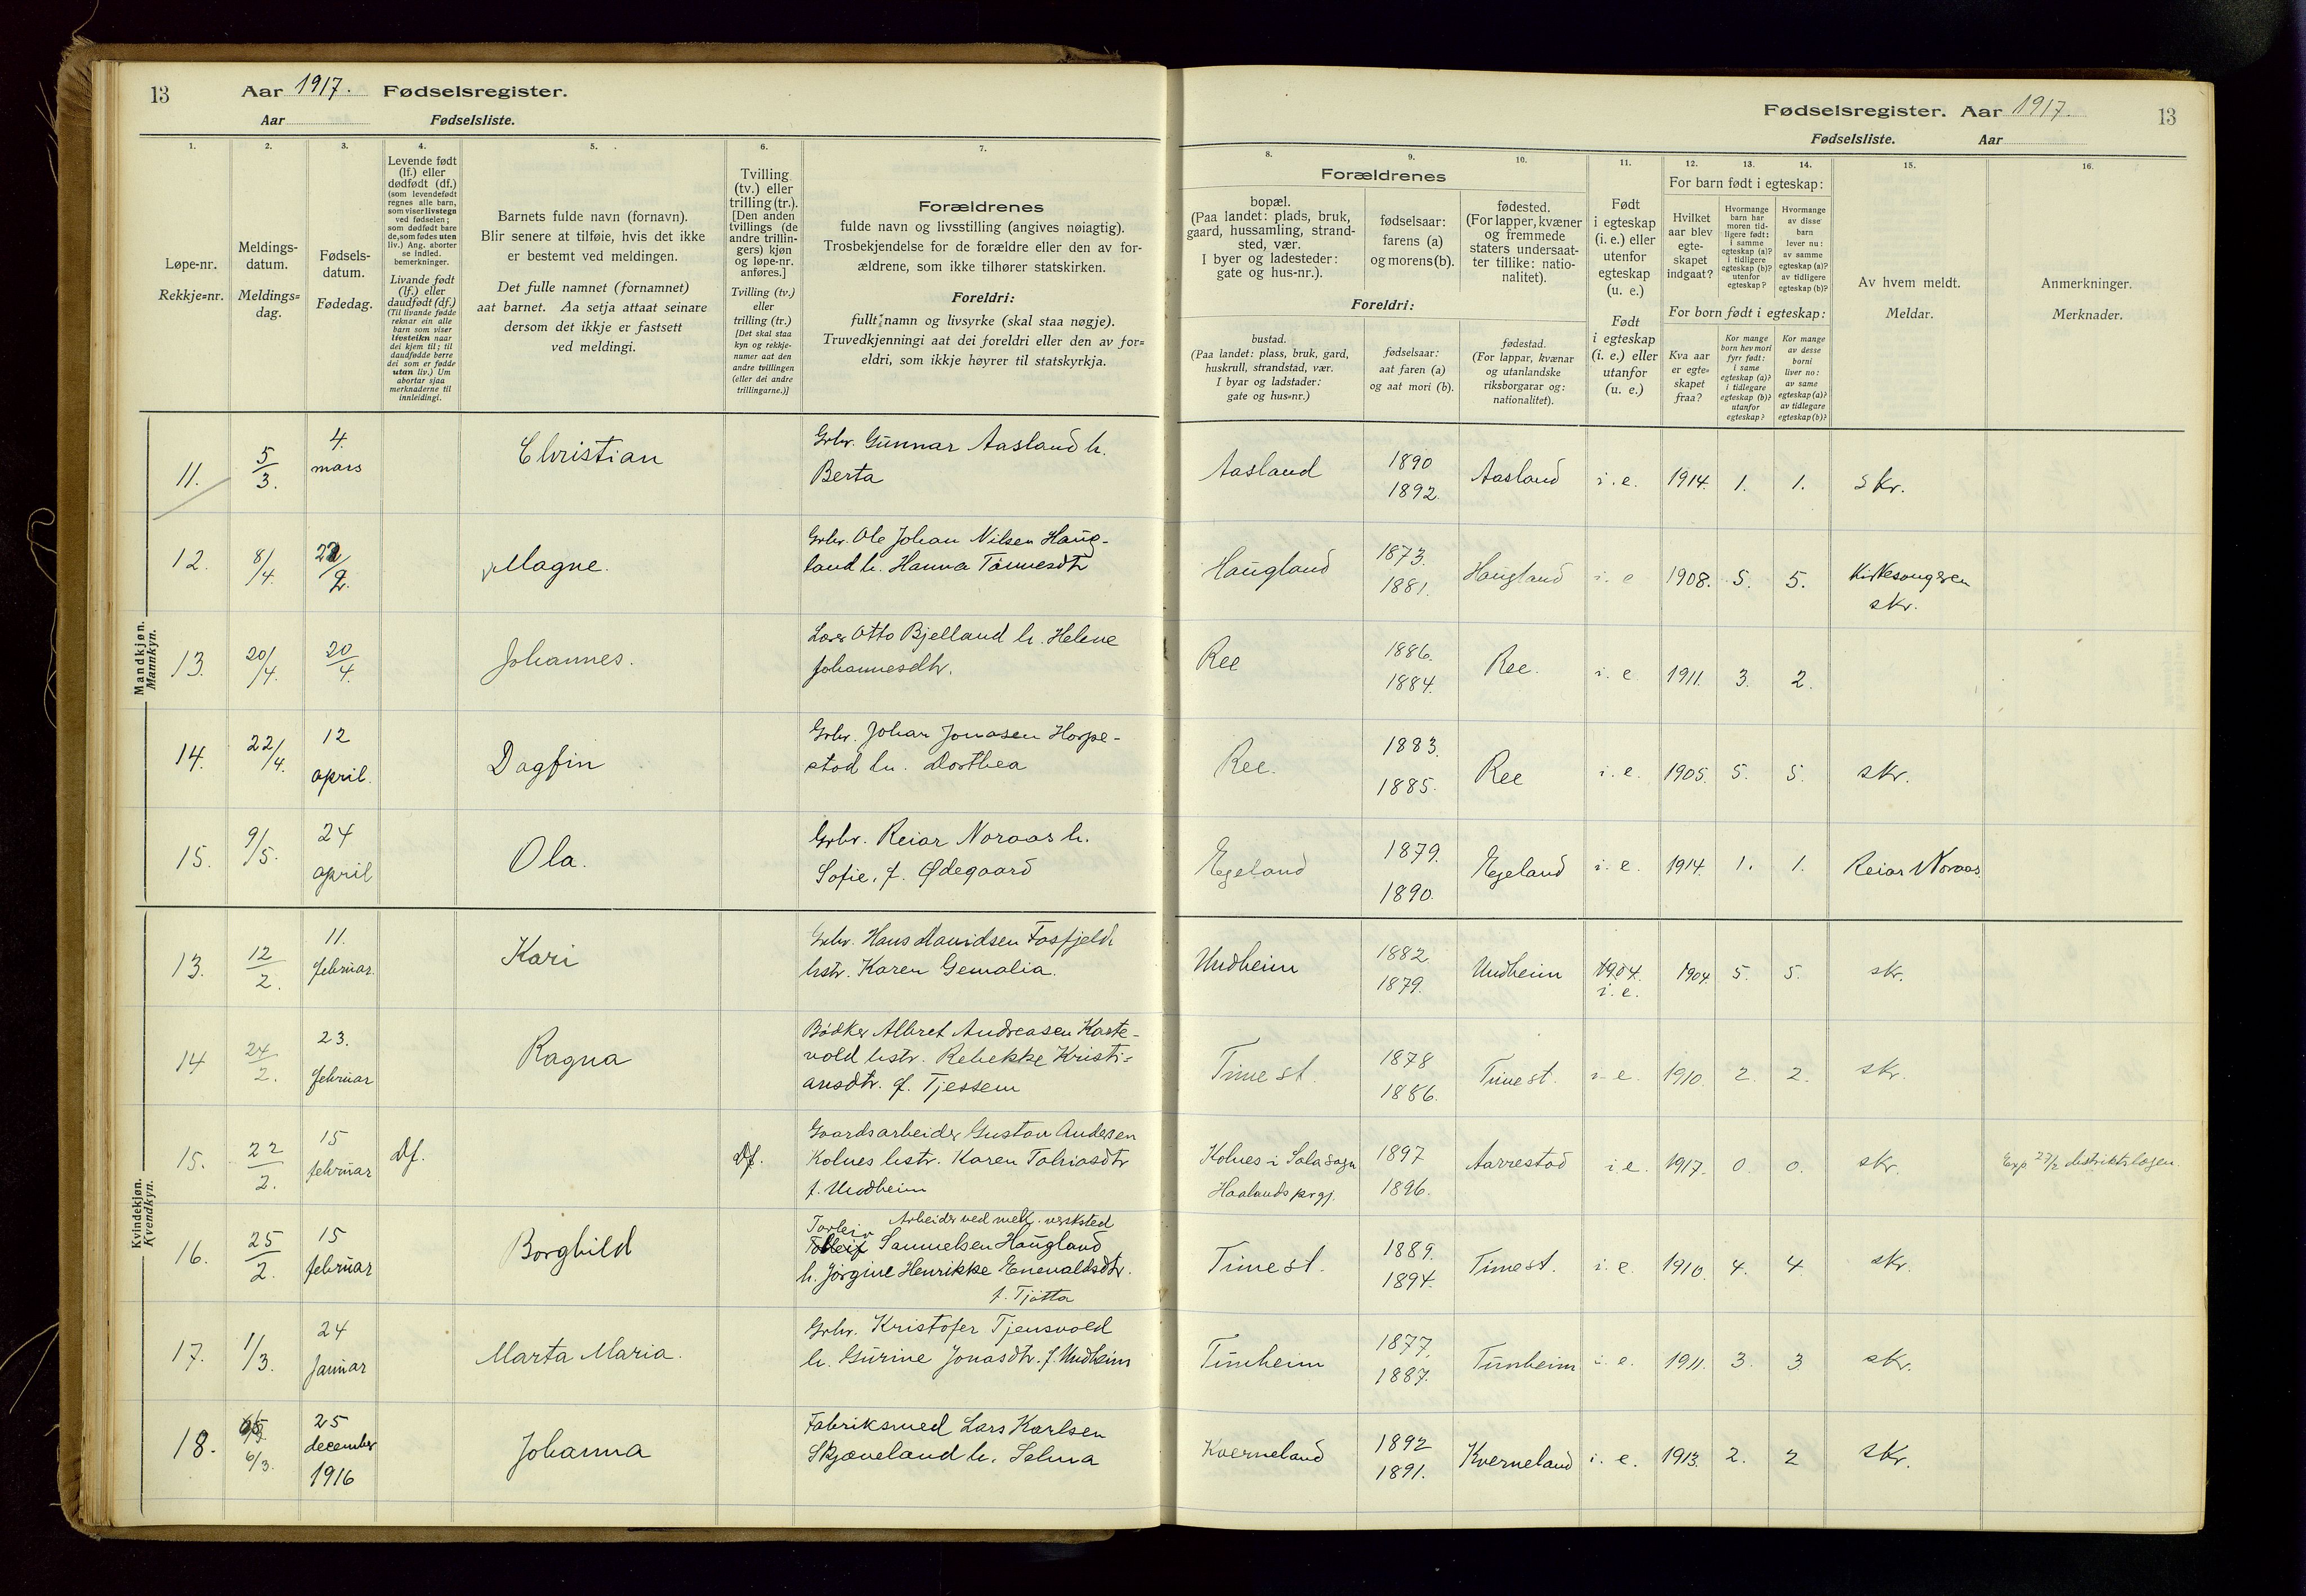 13
Aar 1917. Fødselsregister.
Aar Fødselsliste.
Fødselsregister. Aar 1917.
13
Fødselsliste. Aar
1.
Løpe-nr.
Rekkje=nr.
2.
Meldings-
datum.
Meldings=
dag.
3.
Fødsels-
datum.
Fødedag.
4.
Levende født
(lf.) eller
dødfødt (df.)
(som levendefødt
regnes alle barn,
som viser livstegn
ved fødselen;
som dødfødt bare
de, som fødes uten
liv.) Ang. aborter
se indled.
bemerkninger.
Livande født
(lf.) eller
daudfødt (df.)
(Til livande fødde
reknar ein alle
barn som viser
livsteikn naar
dei kjem til; til
daudfødde berre
dei som er fødde
utan liv.) Um
abortar sjaa
merknaderne til
innleidingi.
5.
Barnets fulde navn (fornavn).
Blir senere at tilføie, hvis det ikke
er bestemt ved meldingen.
Det fulle namnet (fornamnet)
aat barnet. Aa setja attaat seinare
dersom det ikkje er fastsett
ved meldingi.
6.
Tvilling
(tv.) eller
trilling (tr.).
[Den anden
tvillings (de
andre trillin-
gers) kjøn
og løpe-nr.
anføres.]
Tvilling (tv.)
eller
trilling (tr.)
[Det skal staa
kyn og rekkje-
numer aat den
andre tvillingen
(eller dei andre
trillingarne.)]
7.
Forældrenes
fulde navn og livsstilling (angives nøiagtig).
Trosbekjendelse for de forældre eller den av for-
ældrene, som ikke tilhører statskirken.
Foreldri:
fullt namn og livsyrke (skal staa nøgje).
Truvedkjenningi aat dei foreldri eller den av for=
eldri, som ikkje høyrer til statskyrkja.
Forældrenes
8.
bopæl.
(Paa landet: plads, bruk,
gaard, hussamling, strand-
sted, vær.
I byer og ladesteder:
gate og hus-nr.).
9.
fødselsaar:
farens (a)
og morens (b).
10.
fødested.
(For lapper, kvæner
og fremmede
staters undersaat-
ter tillike: natio-
nalitet).
Foreldri:
bustad.
(Paa landet: plass, bruk, gard,
huskrull, strandstad, vær.
I byar og ladstader:
gate og hus=nr.)
fødselsaar:
aat faren (a)
og aat mori (b).
fødestad.
(For lappar, kvænar
og utanlandske
riksborgarar og:
nationalitet).
11.
Født
i egteskap
(i. e.) eller
utenfor
egteskap
(u. e.)
Født
i egteskap
(i. e.) eller
utanfor
(u. e.)
12.
13.
14.
For barn født i egteskap:
Hvilket
aar blev
egte-
skapet
indgaat?
Hvormange
barn har
moren tid-
ligere født:
i samme
egteskap (a)?
i tidligere
egteskap (b)?
utenfor
egteskap?
Hvormange
av disse
barn
lever nu:
av samme
egteskap (a)?
av tidligere
egteskap (b)?
For born født i egteskap:
Kva aar
er egte=
skapet
fraa?
Kor mange
born hev mori
fyrr født:
i same
egteskap (a)?
i tidlegare
egteskap (b)?
utanfor
egteskap?
Kor mange
av desse
borni
liver no:
av same
egteskap (a)?
av tidlegare
egteskap (b)?
15.
Av hvem meldt.
Meldar.
16.
Anmerkninger.
Merknader.
Mandkjøn.
Mannkyn.
11. 5/3. 4. mars Christian Grbr. Gunnar Aasland h.
Berta
Aasland 1890 1892. Aasland i. e. 1914. 1. 1. Skr.
12. 8/4. Magne. Grbr. Ole Johan Nilsen Haug-
land h. Hanna Tønnesdtr
Haugland 1873. 1881. Haugland i. e 1908. 5. 5. Kirkesangeren
skr.
13. 20/4. 20/4. Johannes. Lærer Otto Bjelland h. Helene
Johannesdtr.
Ree 1886. 1884. Ree. i. e 1911. 3. 2.
14. 22/4. 12 april. Dagfin Grbr. Johan Jonasen Horpe-
stad h. Dorthea
Ree. 1883. 1885. Ree i. e. 1905. 5. 5. skr.
15. 9/5. 24 april Ola. Grbr. Reiar Noraas h.
Sofie, f. Ødegaard
Egeland 1879. 1890. Egeland i. e. 1914. 1. 1. Reiar Noraas.
Kvindekjøn.
Kvendkyn.
13. 12/2. 11. februar. Kari Grbr. Hans Davidsen Fosfjeld
hstr. Karen Gemalia.
Undheim 1882 1879. Undheim 1904. i. e. 1904. 5. 5. skr.
14 24/2. 23. februar Ragna Bødker Albret Andreasen Kaste-
vold hstr. Rebekke Kristi=
ansdtr. f. Tjessem
Time st. 1878 1886. Time st. i. e. 1910. 2. 2. skr.
15. 22/2. 15 februar Df. Df. Gaardsarbeider Gustav Andersen
Kolnes hstr. Karen Tobiasdtr
f. Undheim
Kolnes i Sola sogn
Haalands prgj.
1897 1896. Aarrestad i. e. 1917. 0. 0. skr. Exp 27/2 distriktslægen.
16. 25/2. 15 februar Borghild Arbeider ved mek. verksted
Torleiv Samuelsen Haugland
h. Jørgine Henrikke Enevaldsdtr.
f. Tjøtta
Time st. 1889. 1894. Time st. i. e. 1910. 4. 4. skr.
17. 1/3. 24 Januar Marta Maria. Grbr. Kristofer Tjensvold
h. Gurine Jonasdtr. f. Undheim
Tunheim 1877. 1887. Tunheim i. e. 1911. 3. 3 skr.
18. 6/3. 25 december 1916 Johanna Fabriksmed Lars Karlsen
Skjæveland h. Selma
Kverneland 1892 1891. Kverneland i. e. 1913. 2. 2 skr.